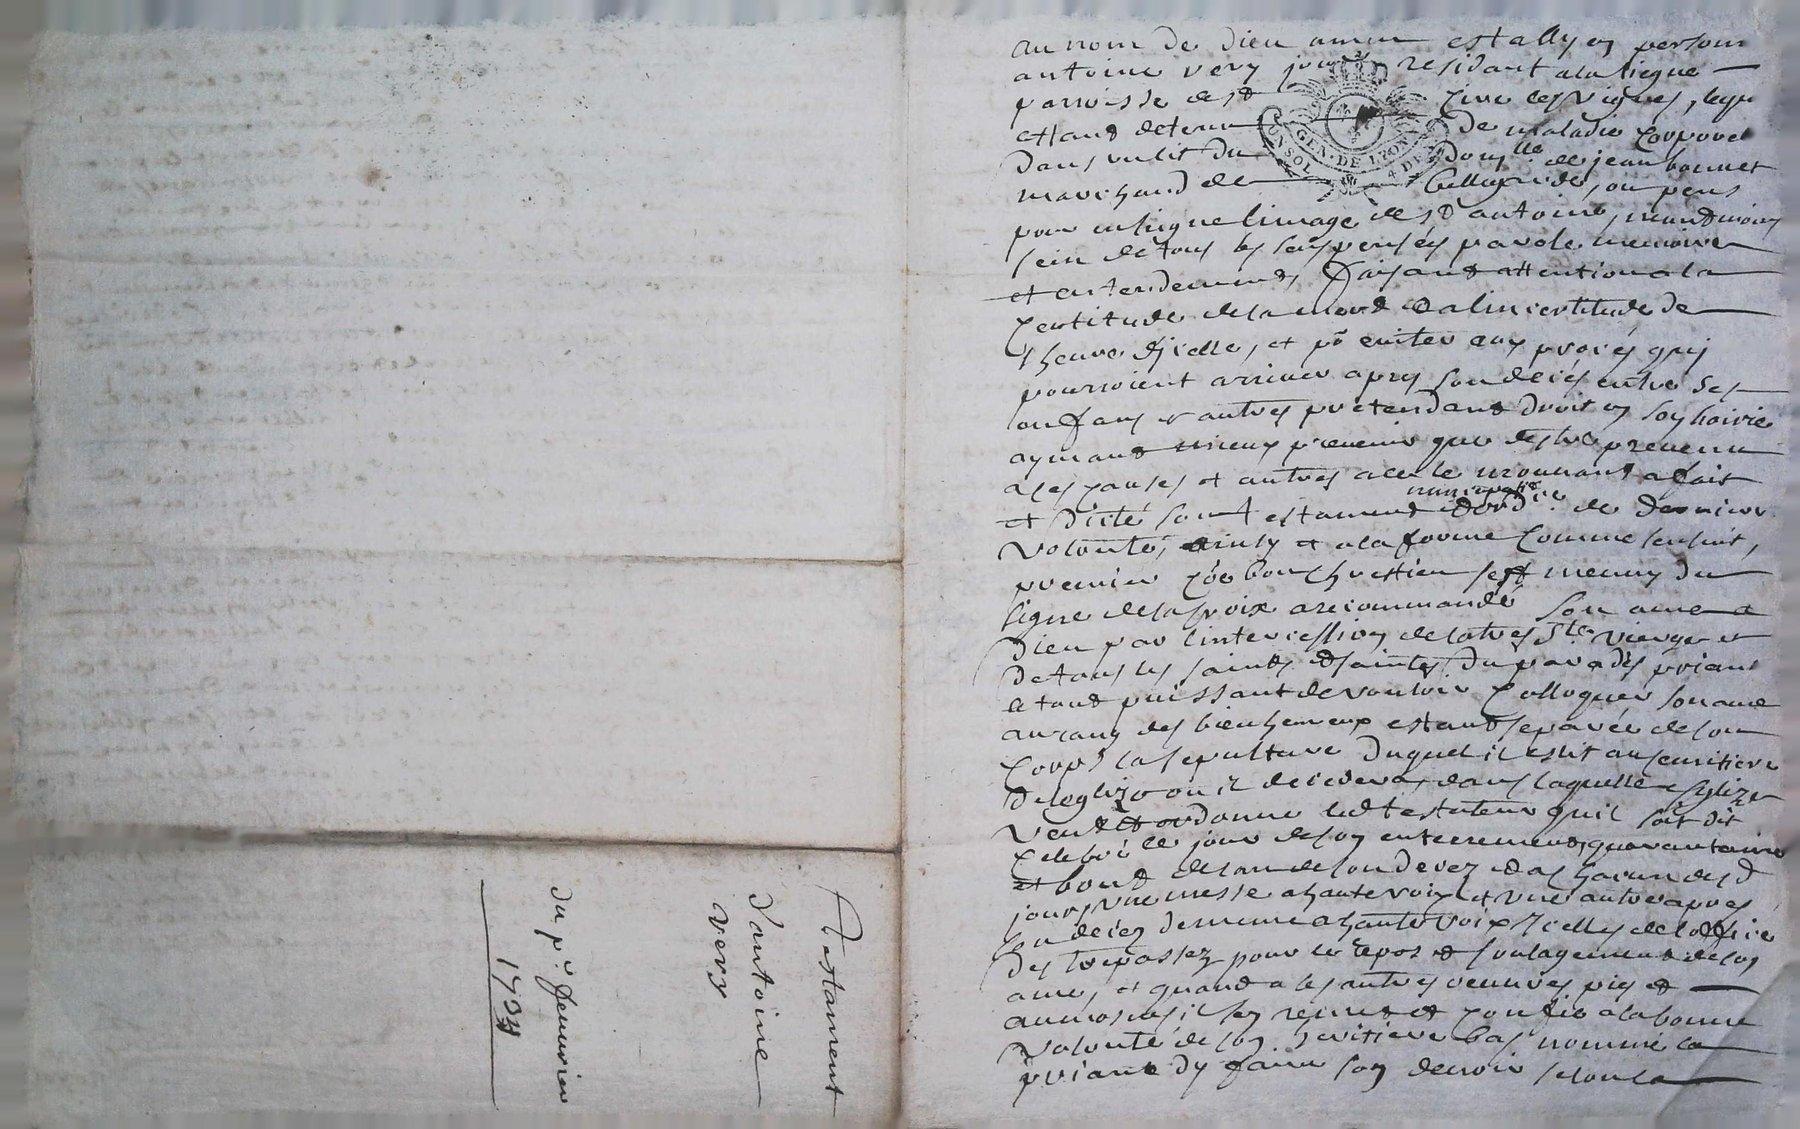 Testament
d'antoine
very
du pr. feuurier
1734
au nom de dieu amen estably en person
antoine very jour residant a la tiegue
parroisse de st Cire les vignes, lequ
estant detenu de maladie corporel
dans un lit du domlle de jean bonnet
marchand de bellegarde, ou pens
pour ensigne limage de st antoine, neantmoins
sein de tous ses sens pensées parole memoire
et entendement, faisant attention a la
Certitude de la mort et a lincertitude de
lheure d'jcelle, et po euiter aux procés qui
pourroient arriuer apres son decés entre ses
enfans et autres pretendant droit en son hoirie
aymant mieux preuenir que destre preuenu
a ces causes et autres a ce le mouuant a fait
et dicté son testament nuncupatif de derniere
volonté, ainsy et a la forme comme sensuit,
premier coe bon chrestien sest meuny du
signe de la croix a recommandé son ame a
dieu par lintercession de la tres ste vierge et
de tous les saints et saintes du paradis priant
le tout puissant de vouloir colloquer son ame
au rang des bienheureux estant separée de son
corps la sepulture duquel il eslit au cemitiere
de leglize ou il decedera, dans laquelle eglize
veut et ordonne led testateur quil soit dit
celebré le jour de son enterrement, quarantaine
et bout de lan de son decez et a chacun desd
jours, vne messe a haute voix et vne autre apres
son decez de meme a haute voix jcelles de loffice
des trepassez pour le repos et soulagement de son
ame, et quand a les autres oeuures pies et
aumosnes il sen remet et confie a la bonne
volonté de son heritiere bas nommé la
priant dy faire son deuoir selon la
GEN. DE LYON